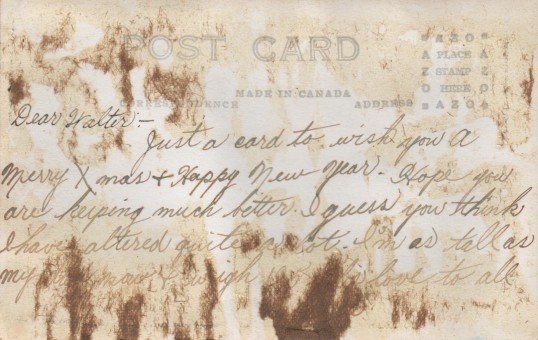 POST CARD
AZO
A PLACE A
Z STAMP Z
O HERE O
AZO
MADE IN CANADA
CORRESPONDENCE ADDRESS
Dear Walter:-
Just a card to wish you a
Merry Xmas + Happy New Year. Hope you
are keeping much better. I guess you think
I have altered quite a lot. I'm as tall as
my weigh love to all